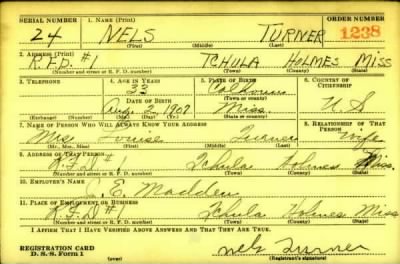 SERIAL NUMBER 1. NAME (Print) ORDER NUMBER
24 NELS TURNER 1238
(First) (Middle) (Last)
2. ADDRESS (Print)
R.F.D. #1 TCHULA HOLMES MISS
(Number and street or R. F. D. number) (Town) (County) (State)
3. TELEPHONE 4. AGE IN YEARS 5. PLACE OF BIRTH 6. COUNTRY OF CITIZENSHIP
33 Calhoun
DATE OF BIRTH (Town or county)
Aug. 2 1907 Miss. U S
(Exchange) (Number) (Mo.) (Day) (Yr.) (State or country)
7. NAME OF PERSON WHO WILL ALWAYS KNOW YOUR ADDRESS 8. RELATIONSHIP OF THAT PERSON
Mrs Turner Wife
(Mr., Mrs., Miss) (First) (Middle) (Last)
9. ADDRESS OF THAT PERSON
R.F.D #1 Tchula Holmes Miss.
(Number and street or R. F. D. number) (Town) (County) (State)
10. EMPLOYER'S NAME
E. Madden
11. PLACE OF EMPLOYMENT OR BUSINESS
R.F.D #1 Tchula Holmes Miss
(Number and street or R. F. D. number) (Town) (County) (State)
I AFFIRM THAT I HAVE VERIFIED ABOVE ANSWERS AND THAT THEY ARE TRUE.
REGISTRATION CARD
D. S. S. Form 1 (over) Nels Turner
(Registrant's signature)